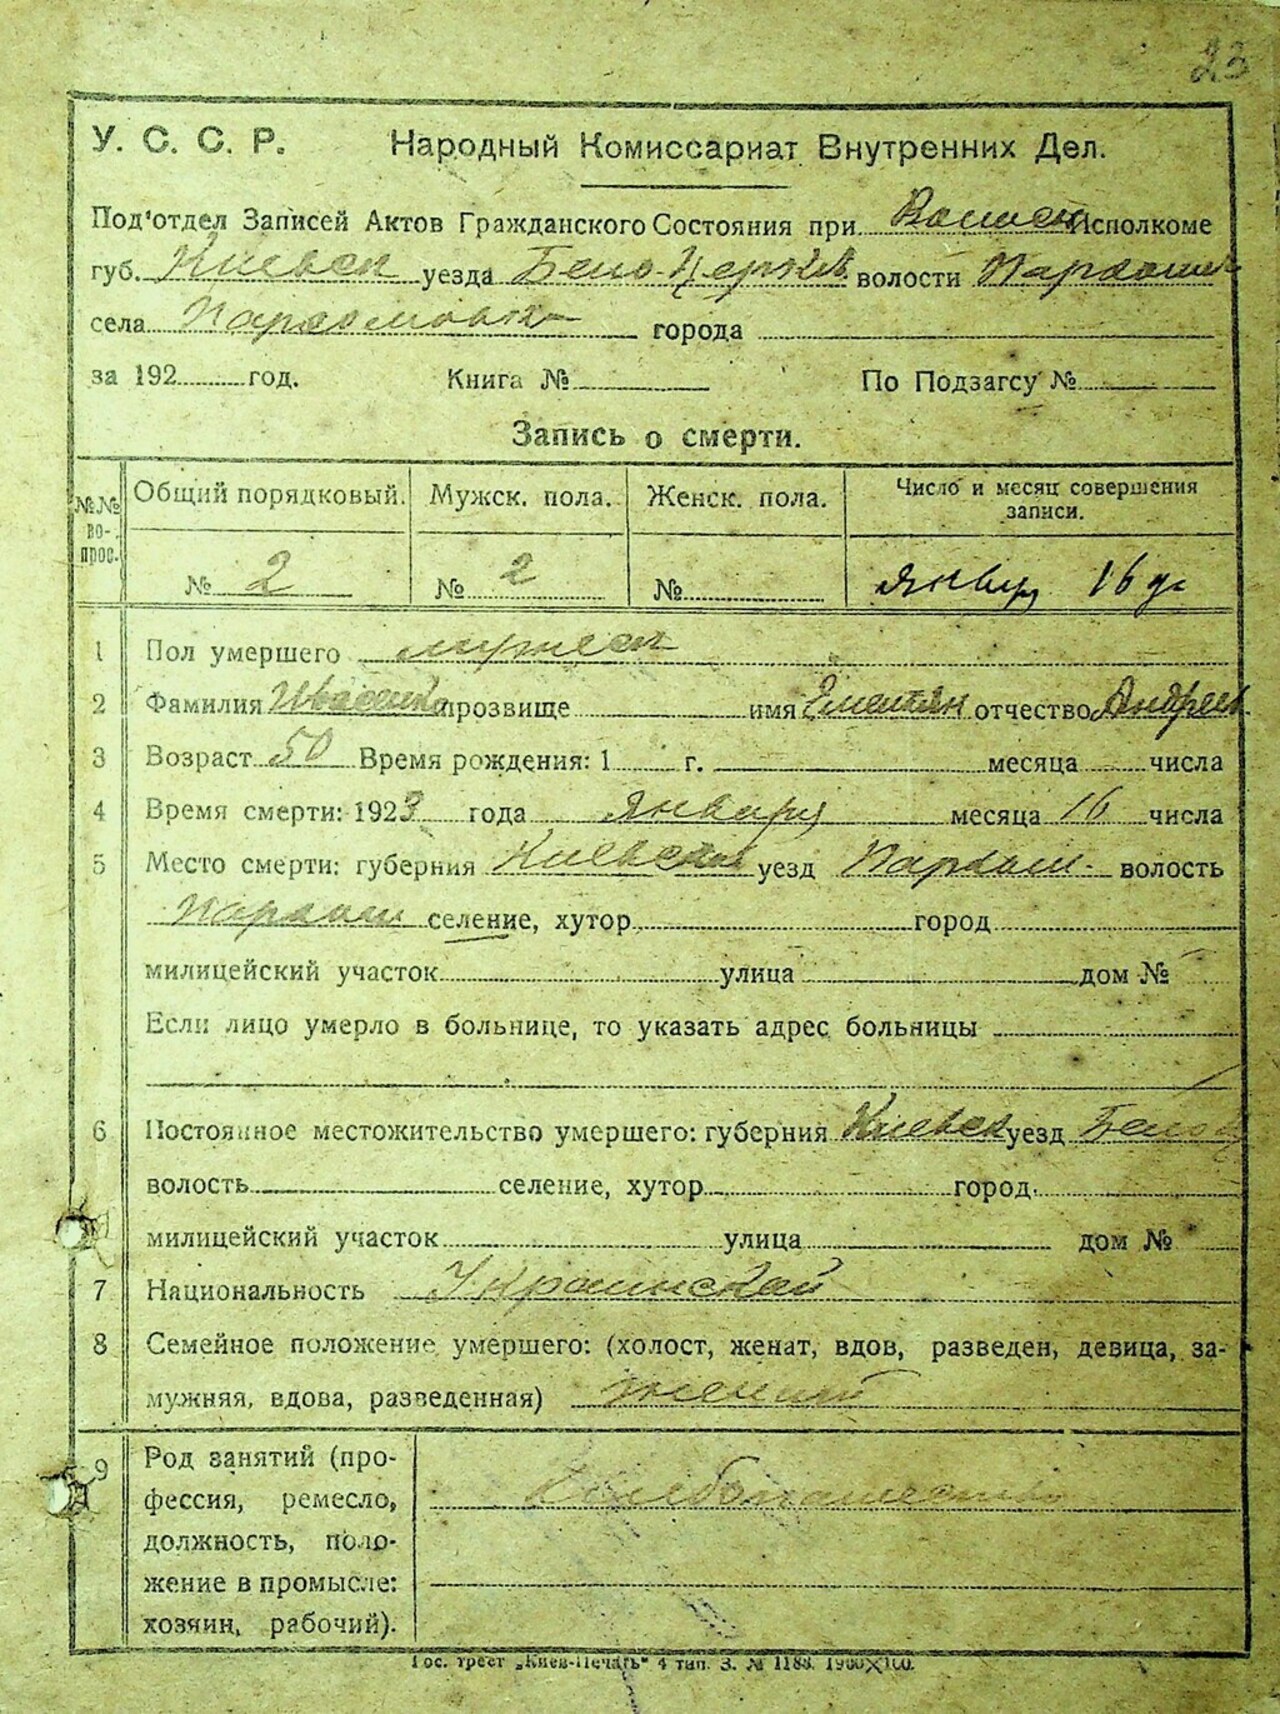 23
У. С. С. Р. Народный Комиссариат Внутренних Дел.
Под'отдел Записей Актов Гражданского Состояния при Исполкоме
губ. Киевск уезда Бело-Церков волости Пархомов
села Пархомовка города
за 192 год. Книга № По Подзагсу №
Запись о смерти.
№№ вопрос. Общий порядковый. Мужск. пола. Женск. пола. Число и месяц совершения записи.
№ 2 № 2 № январ 16 дн
1 Пол умершего мужск
2 Фамилия прозвище имя Емельян отчество Андреев
3 Возраст 50 Время рождения: 1 г. месяца числа
4 Время смерти: 1923 года январ месяца 16 числа
5 Место смерти: губерния Киевской уезд Пархом. волость
Пархом селение, хутор город
милицейский участок улица дом №
Если лицо умерло в больнице, то указать адрес больницы
6 Постоянное местожительство умершего: губерния Киевск уезд Белоц
волость селение, хутор город
милицейский участок улица дом №
7 Национальность Украинской
8 Семейное положение умершего: (холост, женат, вдов, разведен, девица, за-
мужняя, вдова, разведенная)
9 Род занятий (про-
фессия, ремесло,
должность, поло-
жение в промысле:
хозяин, рабочий).
Хлебопашество
Гос. трест „Киев-Печать" 4 тип. З. № 1183. 1900Х100.